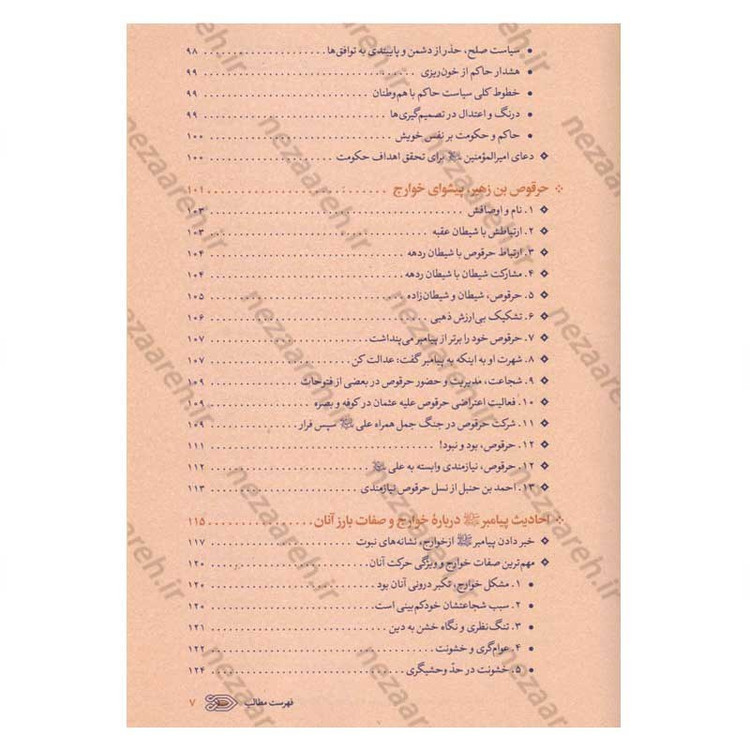 • سیاست صلح، حذر از دشمن و پایبندی به توافق‌ها ........ ۹۸
• هشدار حاکم از خون‌ریزی ........ ۹۹
• خطوط کلی سیاست حاکم با هم‌وطنان ........ ۹۹
• درنگ و اعتدال در تصمیم‌گیری‌ها ........ ۹۹
• حاکم و حکومت بر نفس خویش ........ ۱۰۰
❖ دعای امیرالمؤمنین برای تحقق اهداف حکومت ........ ۱۰۰
حرقوص بن زهیر، پیشوای خوارج ........ ۱۰۱
❖ ۱. نام و اوصافش ........ ۱۰۳
❖ ۲. ارتباطش با شیطان عقبه ........ ۱۰۳
❖ ۳. ارتباط حرقوص با شیطان ردهه ........ ۱۰۴
❖ ۴. مشارکت شیطان با شیطان ردهه ........ ۱۰۴
❖ ۵. حرقوص، شیطان و شیطان‌زاده ........ ۱۰۵
❖ ۶. تشکیک بی‌ارزش ذهبی ........ ۱۰۶
❖ ۷. حرقوص خود را برتر از پیامبر می‌پنداشت ........ ۱۰۷
❖ ۸. شهرت او به اینکه به پیامبر گفت: عدالت کن ........ ۱۰۷
❖ ۹. شجاعت، مدیریت و حضور حرقوص در بعضی از فتوحات ........ ۱۰۹
❖ ۱۰. فعالیت اعتراضی حرقوص علیه عثمان در کوفه و بصره ........ ۱۰۹
❖ ۱۱. شرکت حرقوص در جنگ جمل همراه علی سپس فرار ........ ۱۰۹
❖ ۱۲. حرقوص، بود و نبود! ........ ۱۱۱
❖ ۱۲. حرقوص، نیازمندی وابسته به علی ........ ۱۱۲
❖ ۱۳. احمد بن حنبل از نسل حرقوص نیازمندی ........ ۱۱۳
احادیث پیامبر ﷺ دربارهٔ خوارج و صفات بارز آنان ........ ۱۱۵
❖ خبر دادن پیامبر ﷺ ازخوارج، نشانه‌های نبوت ........ ۱۱۷
❖ مهم‌ترین صفات خوارج و ویژگی حرکت آنان ........ ۱۲۰
• ۱. مشکل خوارج، تکبر درونی آنان بود ........ ۱۲۰
• ۲. سبب شجاعتشان خودکم‌بینی است ........ ۱۲۰
• ۳. تنگ‌نظری و نگاه خشن به دین ........ ۱۲۱
• ۴. عوام‌گری و خشونت ........ ۱۲۲
• ۵. خشونت در حدّ وحشیگری ........ ۱۲۴
فهرست مطالب ۷
nezaareh.ir